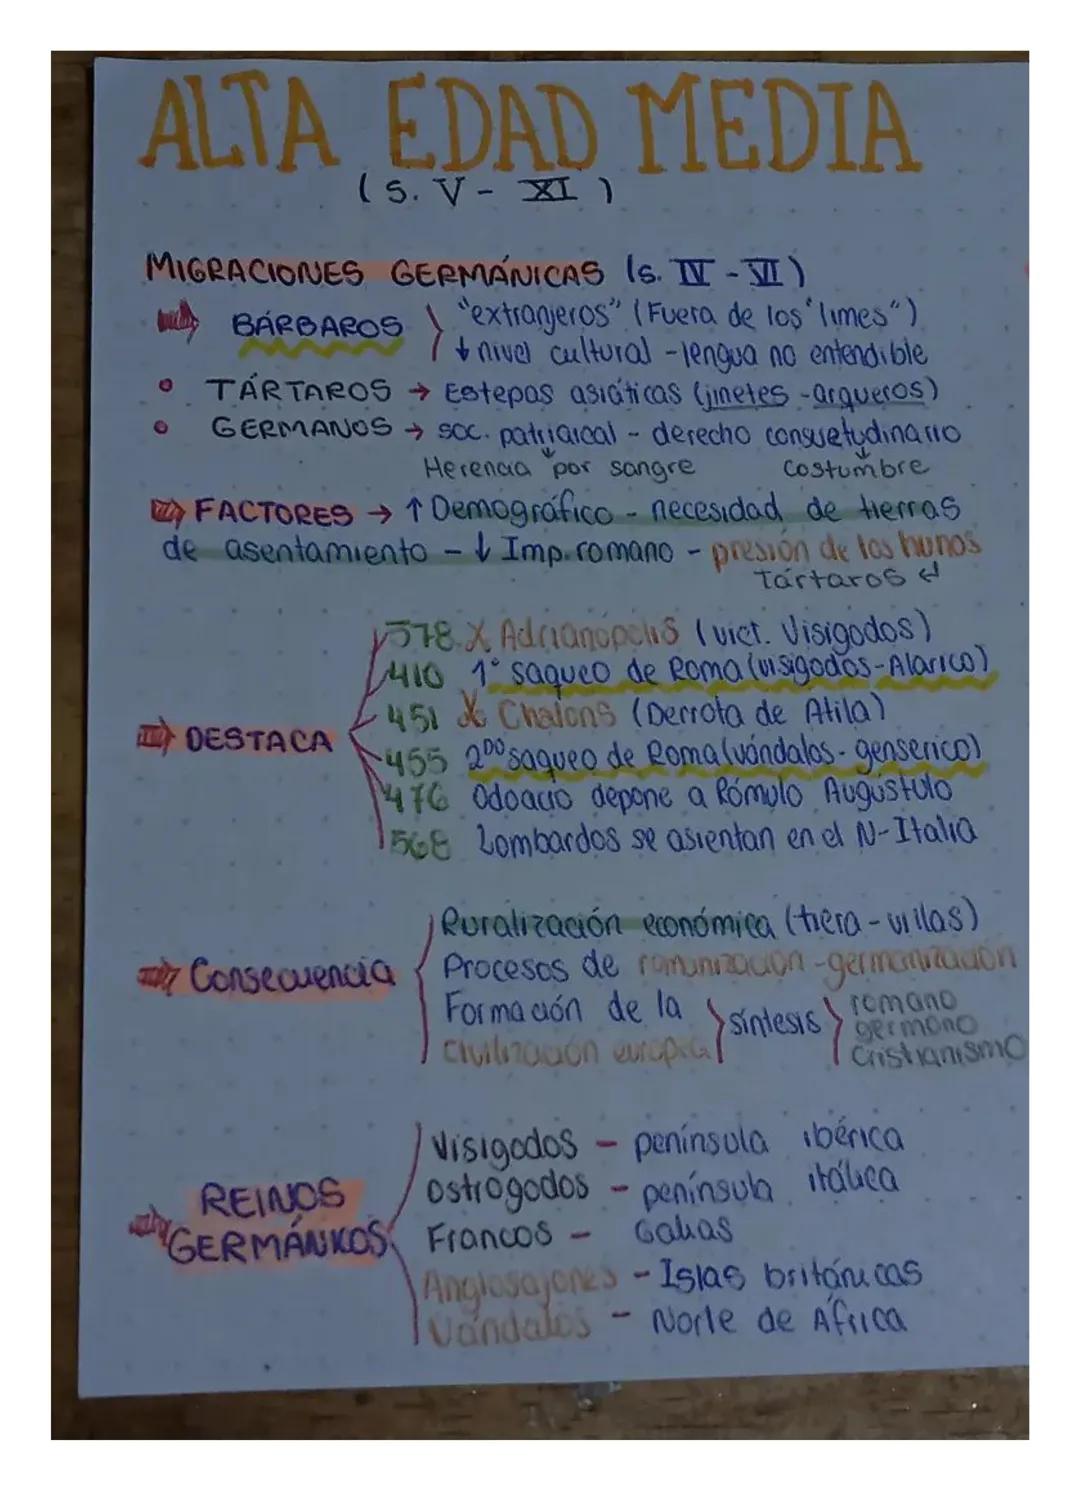 ALTA EDAD MEDIA
(s. V - XI)
MIGRACIONES GERMÁNICAS (s. IV - VI)
BÁRBAROS } "extranjeros" (Fuera de los "limes")
↓ nivel cultural - lengua no entendible
• TÁRTAROS → Estepas asiáticas (jinetes - arqueros)
• GERMANOS → soc. patriarcal - derecho consuetudinario
Herencia por sangre costumbre
FACTORES → ↑ Demográfico - necesidad de tierras
de asentamiento - ↓ Imp. romano - presión de los hunos
Tártaros ↵
378 X Adrianópolis (vict. Visigodos)
410 1º saqueo de Roma (visigodos - Alarico)
451 X Chalons (Derrota de Atila)
DESTACA
455 2DO saqueo de Roma (vándalos - genserico)
476 Odoacro depone a Rómulo Augústulo
568 Lombardos se asientan en el N-Italia
Ruralización económica (tiera - villas)
Consecuencia
Procesos de romanización - germanización
Formación de la
civilización europea } síntesis } romano
germano
Cristianismo
Visigodos - península ibérica
REINOS
GERMÁNICOS
Ostrogodos - península itálica
Francos - Galias
Anglosajones - Islas británicas
Vándalos - Norte de África